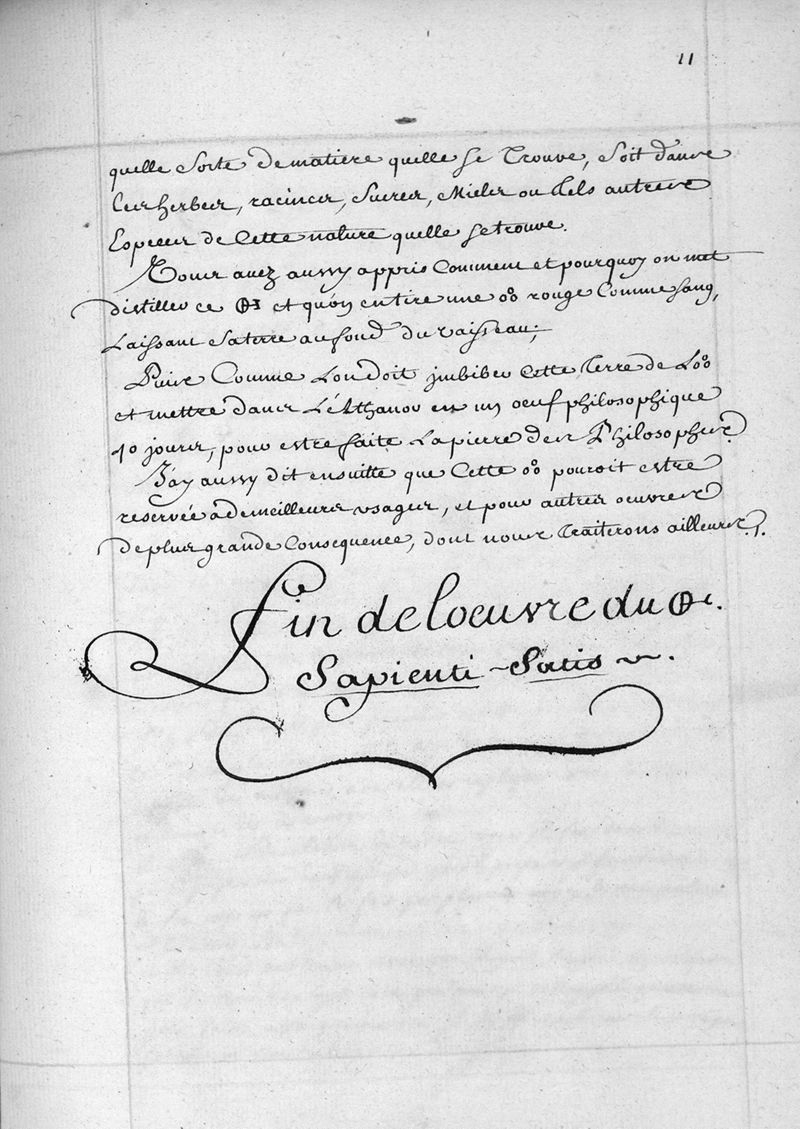 11
quelle Sorte de matiere quelle se Trouve, soit dans
Les herbes, racines, Sucres, Miels ou Tels autres
Especes de Cette nature quelle se trouve.
Vous avez aussy appris Comment et pourquoy on met
distiller ce et qu'on en tire une rouge Comme Sang,
Laissant Sa terre au fond du vaisseau;
Puis Comme Lon doit jmbiber Cette Terre de L
et mettre dans L'Athanor en un oeuf philosophique
40 jours, pour estre faite La pierre des Philosophes.
J'ay aussy dit ensuitte que Cette pouroit estre
reservée a de meilleurs usages, et pour autres oeuvres
de plus grande Consequence, dont nous Traiterons ailleurs.
Fin de loeuvre du
Sapienti - Satis